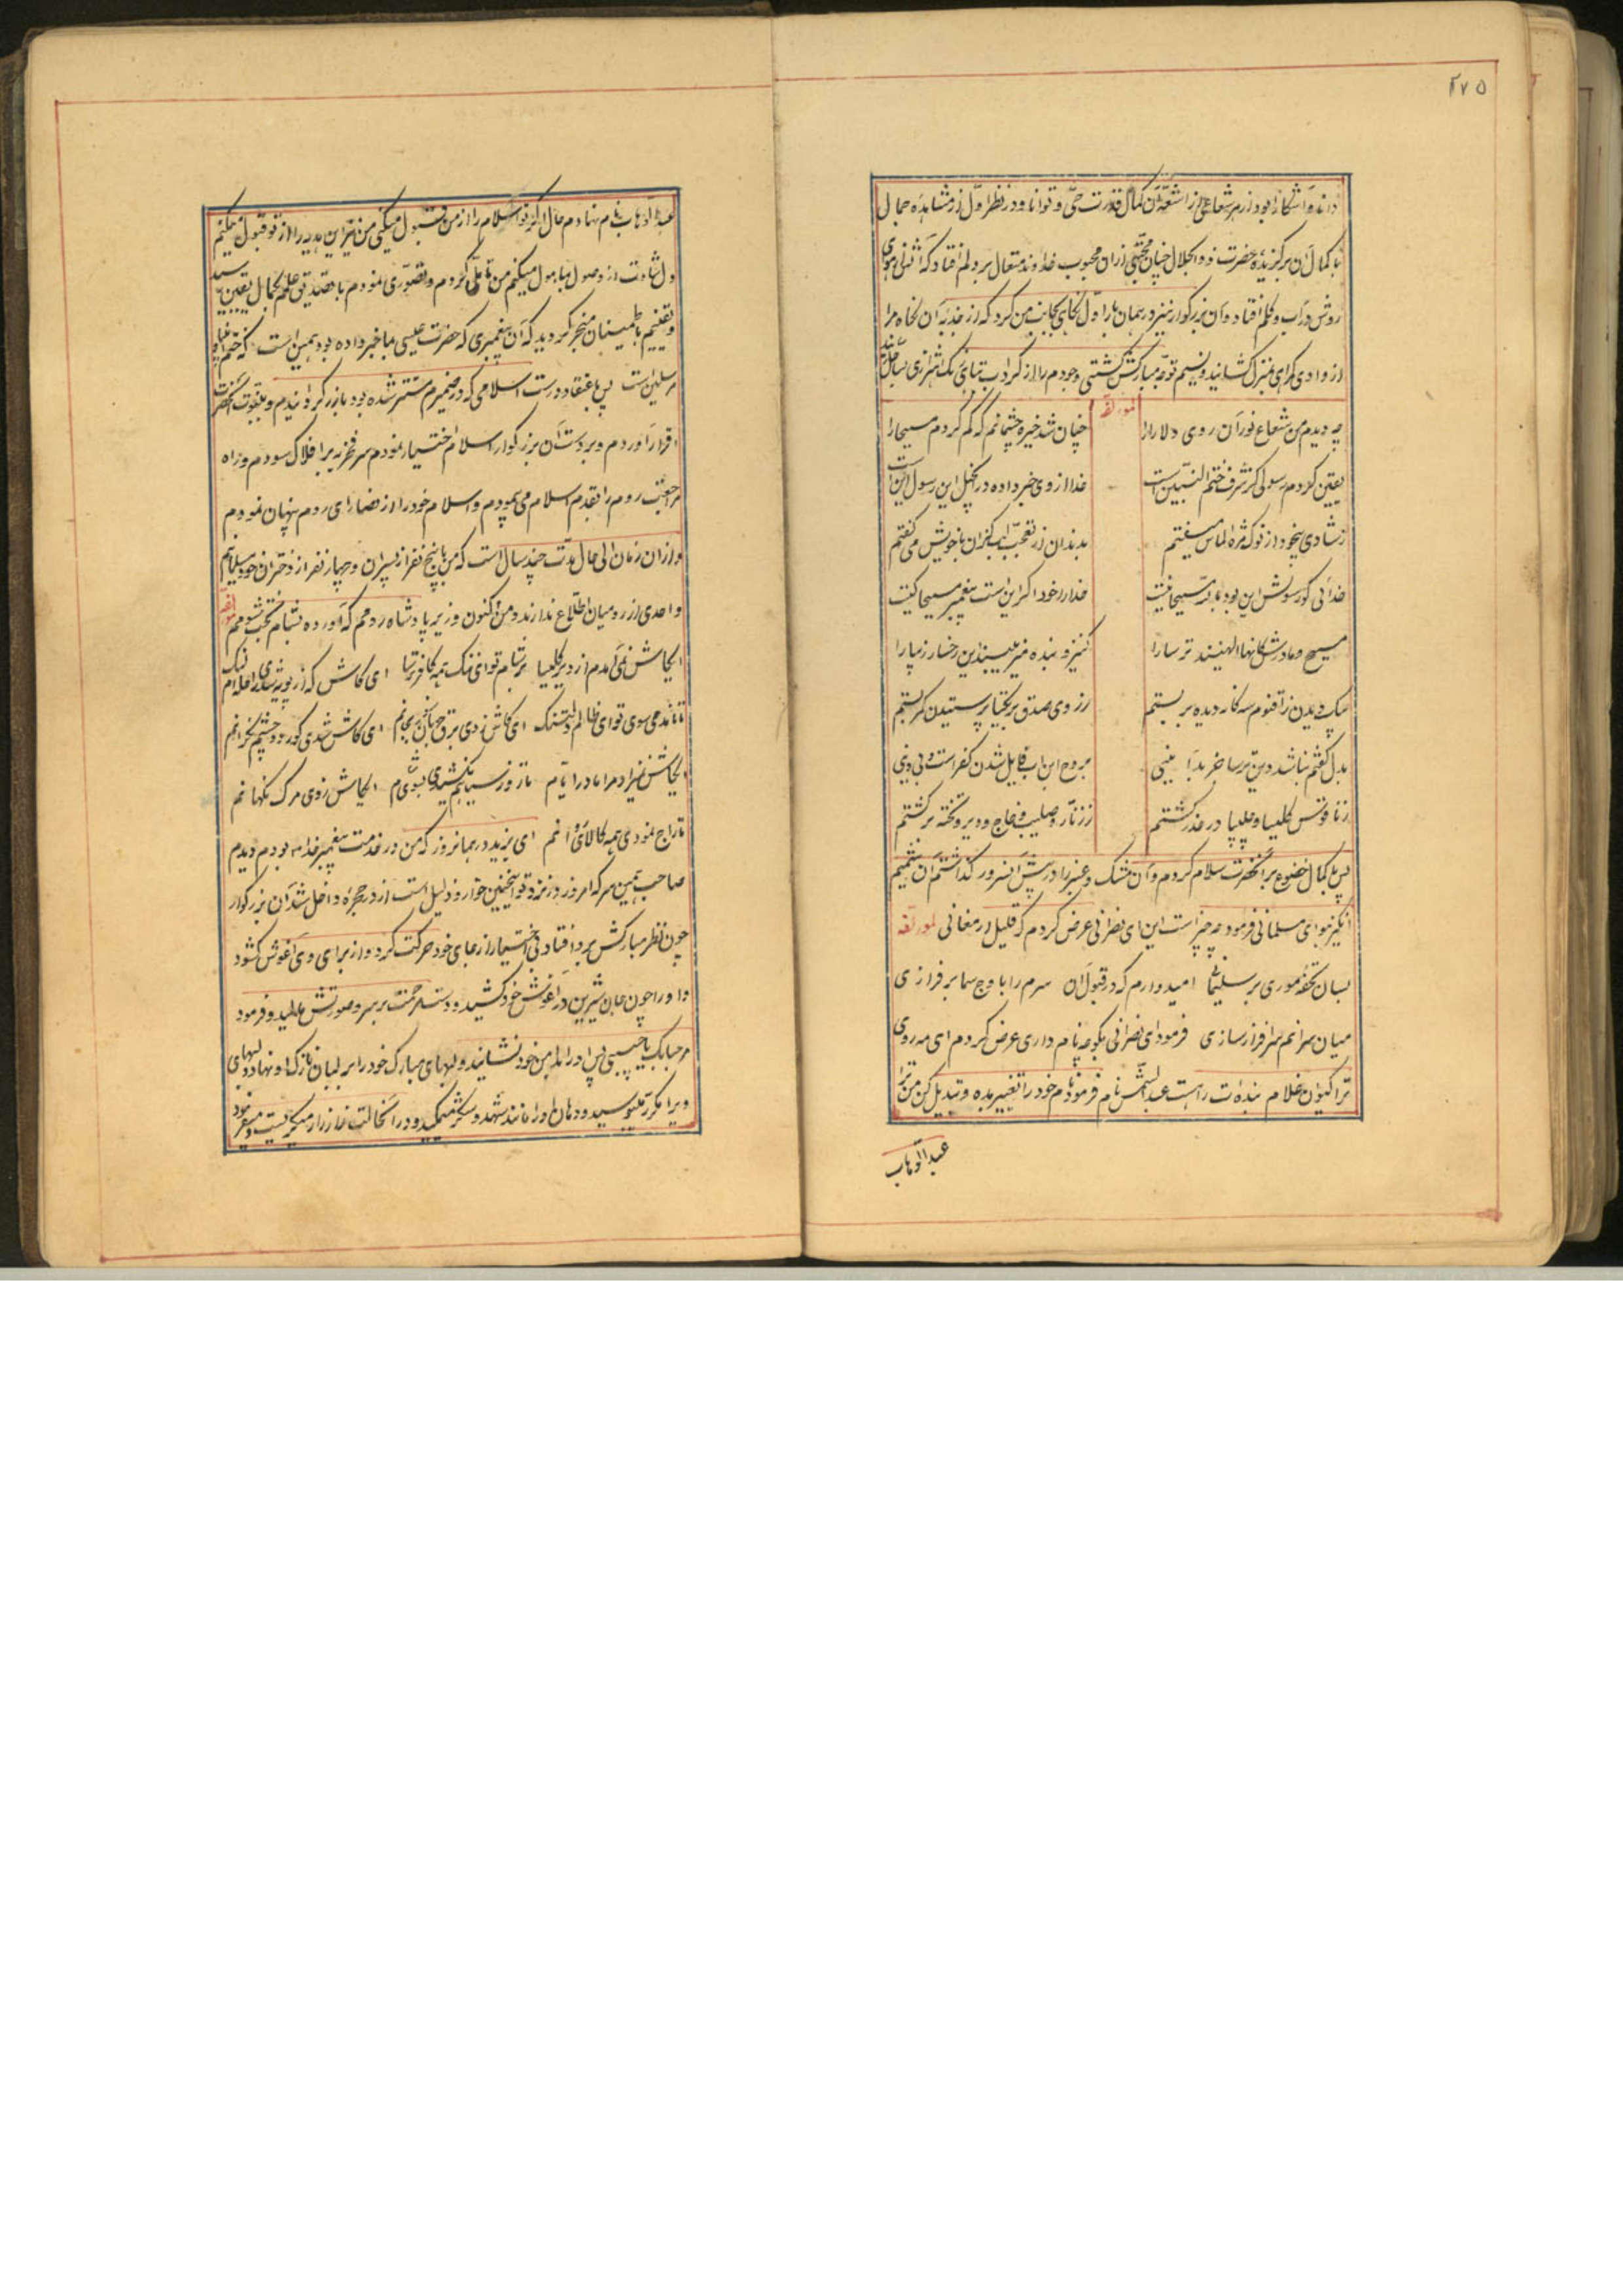 ۲۷۵
داند و آشکارا بود از هر شعاعی از اشعهٔ آن کمال قدرت حی و توانا و در نظر اول از مشاهدهٔ جمال
با کمال آن برگزیدهٔ حضرت ذوالجلال چنان محبتی از آن محبوب خداوند متعال بر دلم افتاد که
روش در آب و گلم افتاد و آن بزرگوار نیز در همان بار اول نگاهی بجانب من کرد که از جذبهٔ آن نگاه مرا
از وادی گمراهی بمنزل کشانید و نسیم توجه مبارکش کشتی وجودم را از گرداب تباهی
لمؤلفه
چه دیدم من شعاع نور آن روی دلارا را
چنان شد خیره چشمانم که گم کردم مسیحا را
یقین کردم رسولی کز شرف ختم النبیین است
خدا از وی خبر داده در انجیل این رسول این است
ز شادی بیخود از نوک مژه الماس میسفتم
بدندان از تعجب لب گزان با خویش می گفتم
خدائی کو رسولش این بود با به مسیحا نیست
خدا را خود اگر این است پیغمبر مسیحا کیست
مسیح و مادرش کانها الهنیند ترسا را
کنیز و بنده می بینند این رخسار زیبا را
سک دیدن ز اقنوم سه گانه دیده بربستم
ز روی صدق بر یکتا پرستیدن کمر بستم
بدل گفتم نباشد دین ترسا جز بد آیینی
بروح ابن اب قایل شدن کفر است و بی دینی
ز ناقوس کلیسا و چلیپا در گذر گشتم
ز زنار و صلیب و خاج و دیر و تخته برگشتم
پس با کمال خضوع بر آنحضرت سلام کردم و آن مشک و عنبر را در پیش آنسرور گذاشتم آن شمیم
انگیز موبای مسلمانی فرمود چه چیز است این ای نصرانی عرض کردم که قلیل ارمغانی لمؤلفه
بسان تحفهٔ موری بر سلیمان امیدوارم که در قبول آن سرم را با اوج سما بر فرازی
میان سرانم سرافراز سازی فرمود ای نصرانی بگو چه نام داری عرض کردم ای مه روی
ترا کیوان غلام بنده ات را هست عبدالشمس نام فرمود نام خود را تغییر بده و تبدیل کن من ترا
عبدالوهاب
عبدالوهاب نام نهادم حال اگر تو اسلام را از من قبول میکنی من نیز این هدیه را از تو قبول میکنم
و لشادت از وصول بمأمول میکنم من تأملی کردم و تصوری نمودم با تصدیق علمم بکمال یقین رسید
و یقینم باطمینان منجر گردید که آن پیغمبری که حضرت عیسی بما خبر داده بود همین است که ختم انبیا و
مرسلین است پس با اعتقاد درست اسلامی که در ضمیرم مستتر شده بود بازگردانیدم و بنبوت آنحضرت
اقرار آوردم و بر دست آن بزرگوار اسلام اختیار نمودم سر فخریه بر افلاک سودم و راه
مراجعت روم را بقدم اسلام می پیمودم و اسلام خود را از نصارای روم پنهان نمودم
و از آن زمان الی حال مدت چند سال است که من با پنج نفر از پسران و چهار نفر از دختران خود مسلمانم
و احدی از رومیان اطلاع ندارند و من اکنون وزیر پادشاه رومم که آورده بشام لمؤلفه
ایکاش نمی آمدم از دیر کلیسا بر شام تو ای ننگ همه کافر ترسا ای کاش که
تا نامدمی سوی تو ای ظالم دلتنگ ای کاش زدی برق جهانسوز بجانم ای کاش شدی کور دو چشم نگرانم
ایکاش نزاد مرا مادر ایام تا روز سیاهم نکشیدی بسوی شام ایکاش ز وی مرگ نگهانم
تاراج نمودی همه کالای و انم ای یزید در همانروز که من در خدمت پیغمبر خدا بودم دیدم
صاحب همین سر که امروز در نزد تو اینچنین خوار و ذلیل است از در حجره داخل شد آن بزرگوار
چون نظر مبارکش بر او افتاد بی اختیار از جای خود حرکت کرد و از برای وی آغوش گشود
و او را چون جان شیرین در آغوش خود کشید و دست رحمت بر سر و صورتش مالید و فرمود
مرحبا بک یا حبیبی پس او را بدامن خود نشانید و لبهای مبارک خود را بر لبان نازک او نهاد و لبهای
ویرا مکرر میبوسید و دهان او را مانند شهد و شکر میمکید و در آنحالت زار زار میگریست و میفرمود